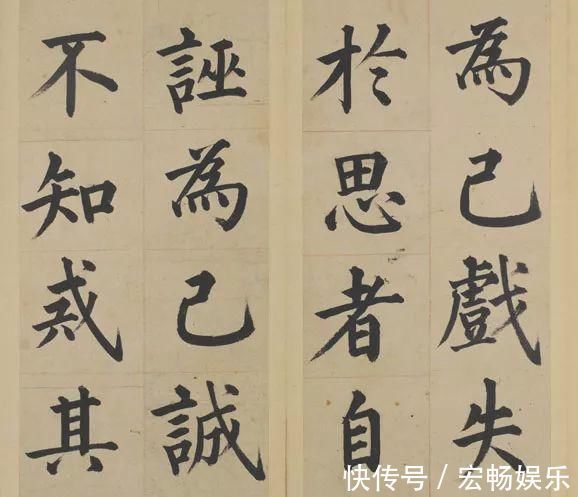 為己戲失
於思者自
誣為己誠
不知戒其
快传号 / 宏畅娱乐